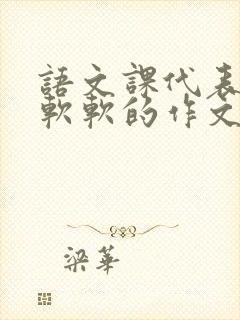 語文課代表
軟軟的作文
梁華